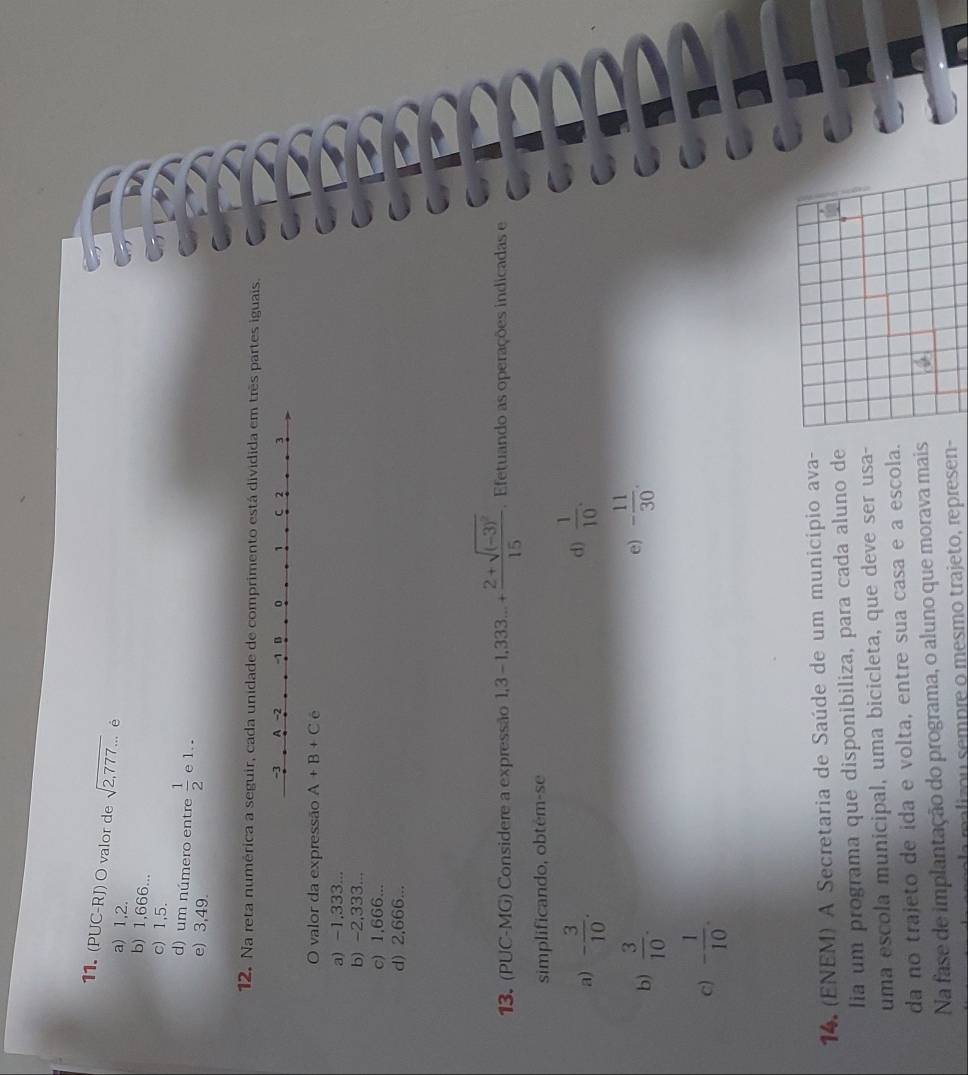 11. (PUC-RJ) O valor de √2,777... é
a) 1,2.
b) 1,666...
c) 1,5.
d) um número entre 1/2 e 1..
e) 3,49.
12. Na reta numérica a seguir, cada unidade de comprimento está dividida em três partes iguais.
-3 A -2 -1 B 0 1 C 2 3
O valor da expressão A + B + C é
a) -1,333...
b) -2,333...
c) 1,666...
d) 2,666...
13. (PUC-MG) Considere a expressão 1,3 - 1,333... + (2 + √(-3)²)/15. Efetuando as operações indicadas e
simplificando, obtêm-se
a) -3/10.
b) 3/10.
c) -1/10.
d) 1/10.
e) -11/30.
14. (ENEM) A Secretaria de Saúde de um município ava-
lia um programa que disponibiliza, para cada aluno de
uma escola municipal, uma bicicleta, que deve ser usa-
da no trajeto de ida e volta, entre sua casa e a escola.
Na fase de implantação do programa, o aluno que morava mais
realizou sempre o mesmo trajeto, represen-